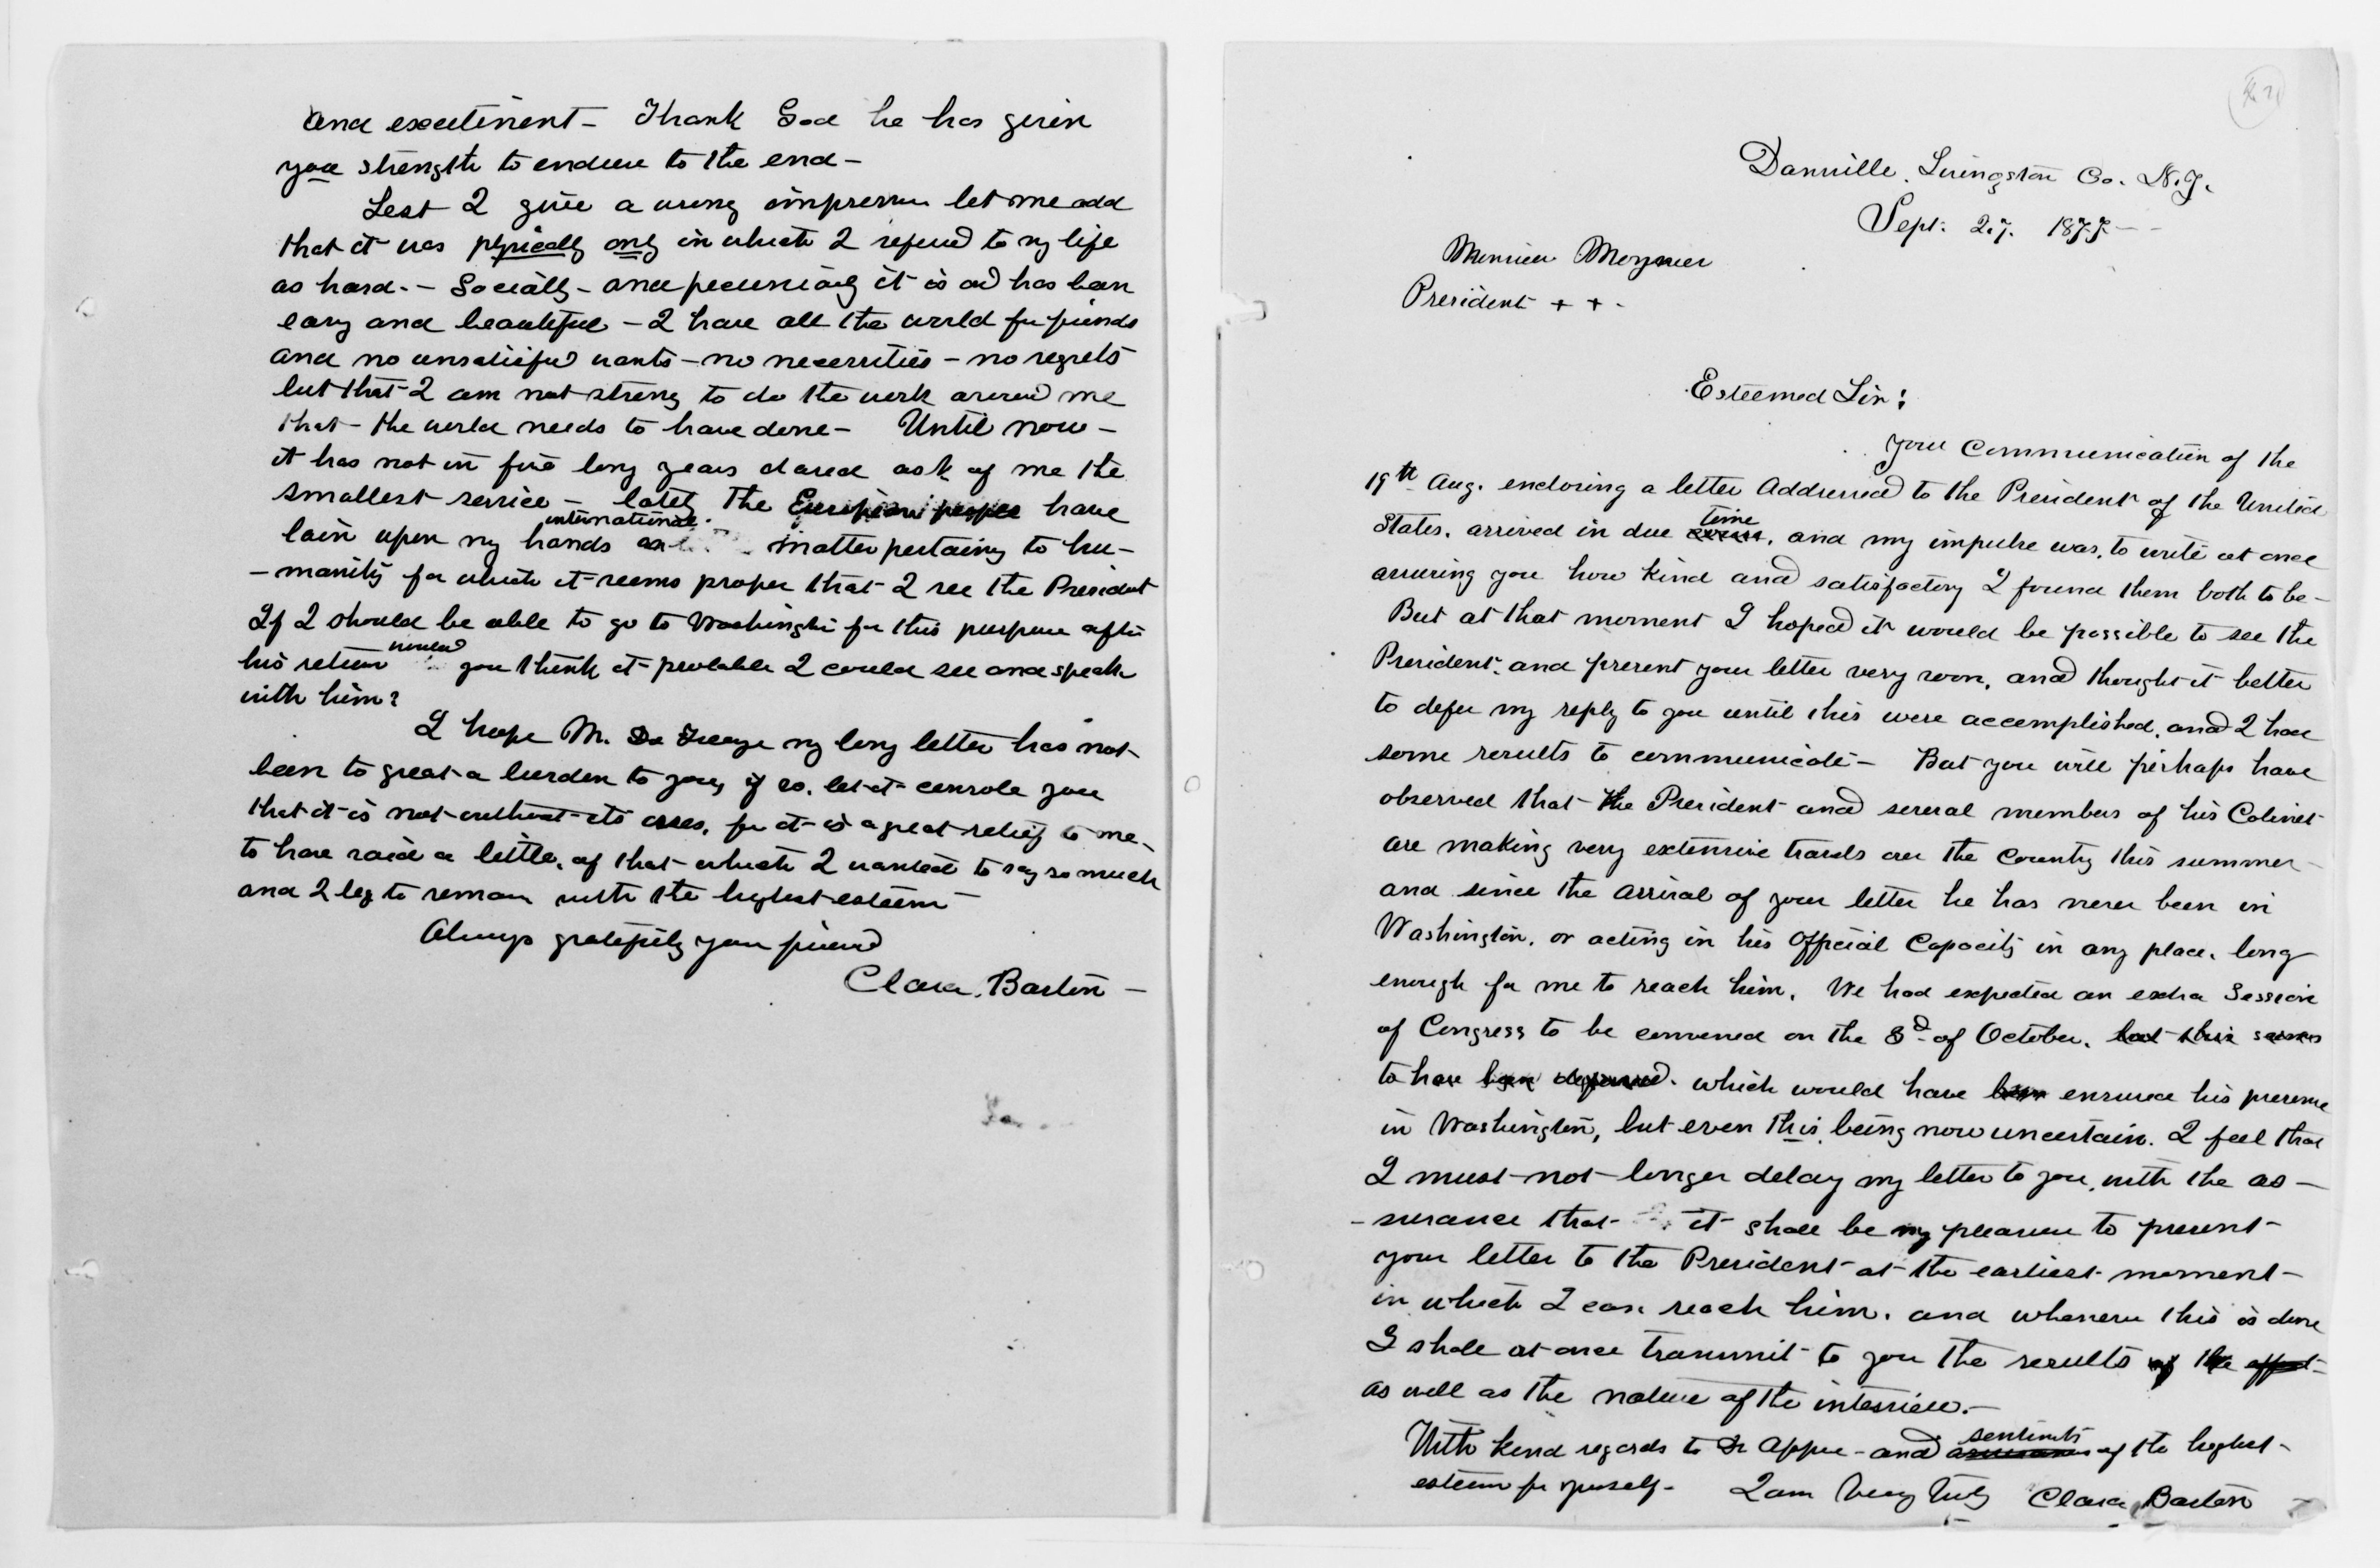 and excitement - Thank God he has given
you strength to endure to the end -
Lest I give a wrong impression let me add
that it was physically only in which I refered to my life
as hard. - Socially - and pecuniarily it is and has been
easy and beautiful - I have all the world for friends
and no unsatisfied wants - no necessities - no regrets
but that I am not strong to do the work around me
that - the world needs to have done - Until now -
it has not in five long years dared ask of me the
smallest service - lately the European people have
international
lain upon my hands matter pertaining to hu-
-manity for which it seems proper that I see the President
If I should be able to go to Washington for this purpose after
would
his return you think it probable I could see and speak
with him?
I hope M. my long letter has not
been to great a burden to you, if so, let it console you
that it is not without its uses, for it is a great relief to me -
to have said a little, of that which I wanted to say so much
and I beg to remain with the highest esteem
Always gratefully your friend
Clara Barton -
Dansville, Livingston Co. N.Y.
Sept. 27. 1877 - -
Monsieur Moynier
President + + -
Esteemed Sir:
Your Communication of the
19th Aug. enclosing a letter Addressed to the President of the United
time
States, arrived in due course, and my impulse was, to write at once
assuring you how kind and satisfactory I found them both to be -
But at that moment I hoped it would be possible to see the
President, and present your letter very soon, and thought it better
to defer my reply to you until this were accomplished, and I had
some results to communicate - But you will perhaps have
observed that the President and several members of his Cabinet
are making very extensive travels over the Country this summer -
and since the arrival of your letter he has never been in
Washington, or acting in his Official Capacity in any place, long
enough for me to reach him. We had expected an extra Session
of Congress to be convened on the 3d of October, but this seems
to have been deferred. which would have been ensured his presence
in Washington, but even this being now uncertain. I feel that
I must not longer delay my letter to you, with the as -
- surance that it shall be my pleasure to present
your letter to the President at the earliest moment -
in which I can reach him, and whenever this is done
I shall at once transmit to you the results of the effort -
as well as the nature of the interview. -
sentiments
With kind regards to Dr Appia - and assurances of the highest
esteem for yourself - I am Very Truly Clara Barton